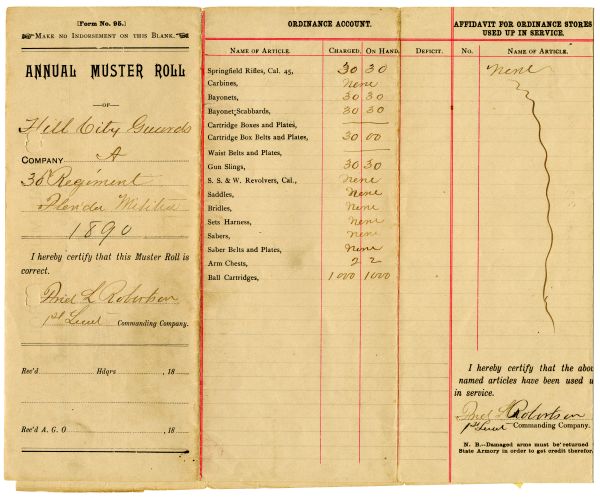 [Form No. 95.]
Make no Indorsement on this Blank.
ANNUAL MUSTER ROLL
—OF—
Hill City Guards
COMPANY A
3d Regiment
Florida Militia
1890
I hereby certify that this Muster Roll is
correct.
Fred L Robertson
1st Lieut Commanding Company.
Rec'd Hdqrs , 18
Rec'd A. G. O , 18
ORDINANCE ACCOUNT.
Name of Article. Charged. On Hand. Deficit.
Springfield Rifles, Cal. 45, 30 30
Carbines, None
Bayonets, 30 30
Bayonet Scabbards, 30 30
Cartridge Boxes and Plates, —
Cartridge Box Belts and Plates, 30 00
Waist Belts and Plates, —
Gun Slings, 30 30
S. S. & W. Revolvers, Cal., None
Saddles, None
Bridles, None
Sets Harness, None
Sabers, None
Saber Belts and Plates, None
Arm Chests, 2 2
Ball Cartridges, 1000 1000
AFFIDAVIT FOR ORDINANCE STORES
USED UP IN SERVICE.
No. Name of Article.
None
I hereby certify that the abov
named articles have been used u
in service.
Fred L Robertson
1st Lieut Commanding Company.
N. B.—Damaged arms must be returned
State Armory in order to get credit therefor